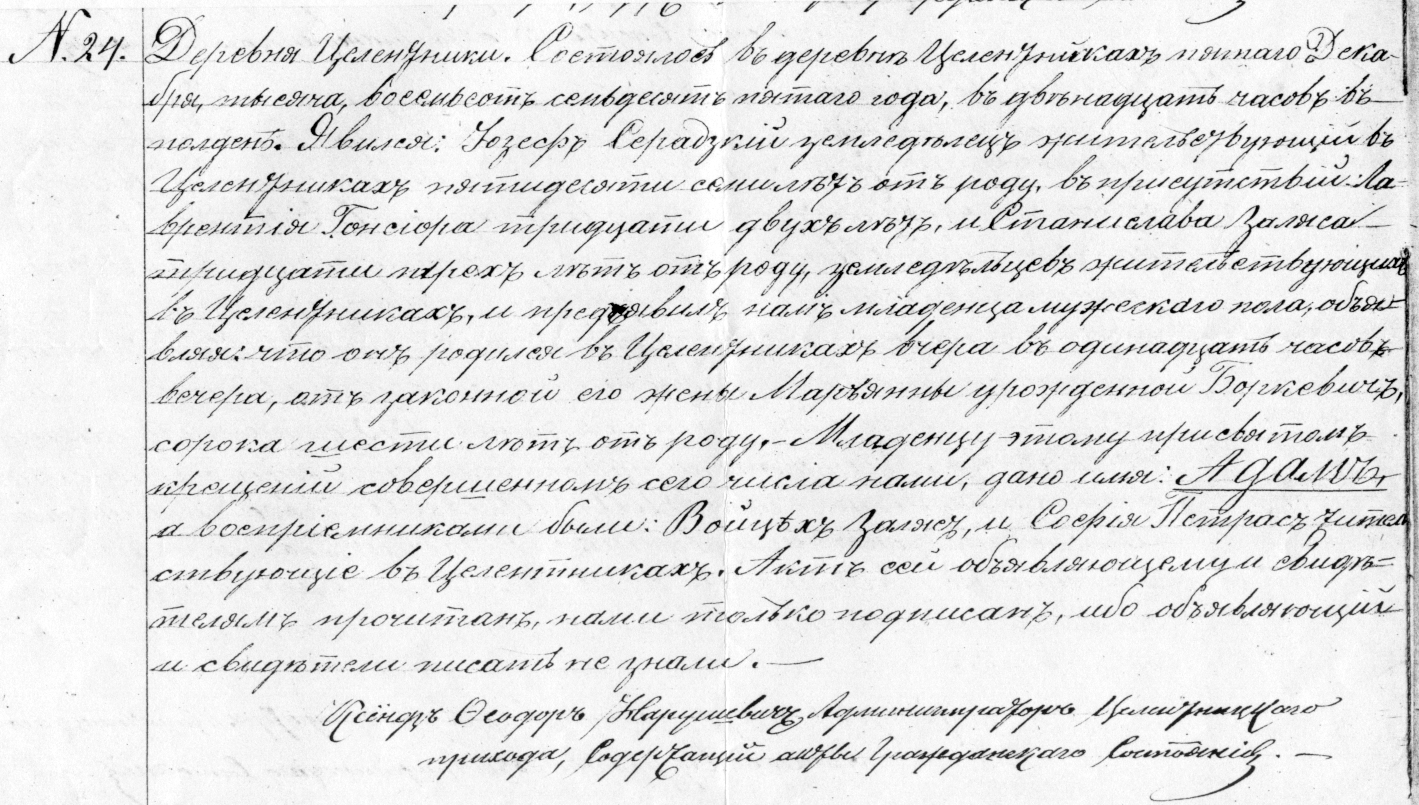 N. 24. Деревня Целентники. Состоялось въ деревнѣ Целентникахъ пятаго Дека-
бря, тысяча, восемьсотъ семьдесятъ пятаго года, въ двѣнадцать часовъ въ
полдень. Явился: Юзефъ Серадзкій земледѣлецъ жительствующій въ
Целентникахъ пятидесяти семи лѣтъ отъ роду, въ присутствіи Ла-
врентія Гонсіора тридцати двухъ лѣтъ, и Станислава Заляса
тридцати трехъ лѣтъ отъ роду, земледѣльцевъ жительствующихъ
въ Целентникахъ, и предъявилъ намъ младенца мужескаго пола, объя-
вляя: что онъ родился въ Целентникахъ вчера въ одинадцать часовъ
вечера, отъ законной его жены Марьянны урожденной Боркевичъ,
сорока шести лѣтъ отъ роду. - Младенцу этому при святомъ
крещеніи совершенномъ сего числа нами, дано имя: Адамъ,
а воспріемниками были: Войцѣхъ Залясъ, и Софія Петрасъ жител
ствующіе въ Целентникахъ. Актъ сей объявляющему и свидѣ-
телямъ прочитанъ, нами только подписанъ, ибо объявляющій
и свидѣтели писать не знали. —
Ксёндзъ Ѳеодоръ Администраторъ Целентницкаго
прихода, Содержащій акты Гражданскаго Состоянія. —